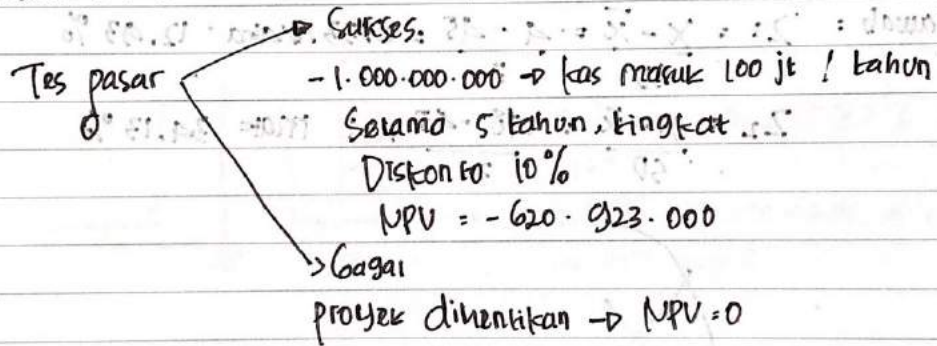 Sukses:
Tes pasar
0
- 1.000.000.000 → kas masuk 100 jt / tahun
Selama 5 tahun, tingkat
Diskonto: 10%
NPV = - 620.923.000
Gagal
proyek dihentikan → NPV = 0